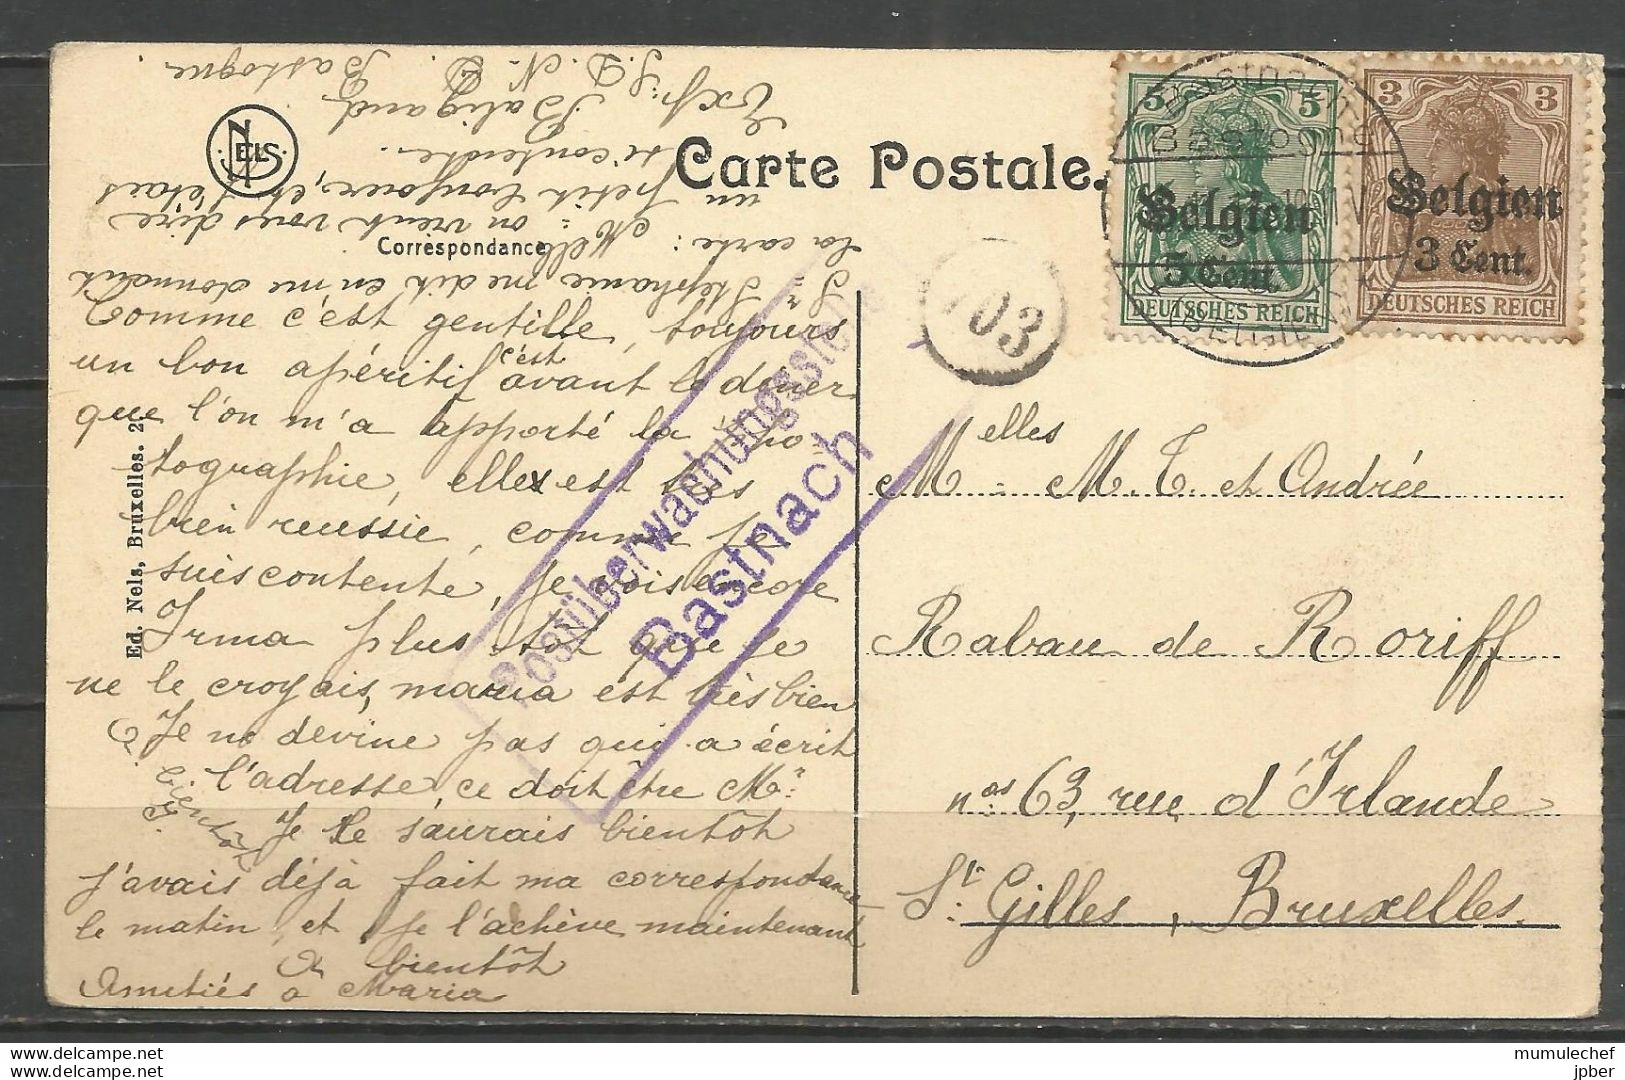 Carte Postale.
Correspondance
NELS
Ed. Nels, Bruxelles.
Comme c'est gentille, toujours
un bon apéritif c'est avant le dîner
que l'on m'a apporté la pho-
tographie, elle est très
bien reussie, comme je
suis contente, je vois encore
Irma plus tot que je
ne le croyais, maria est très bien
Je ne devine pas qui a écrit
l'adresse, ce doit être Mr
Je le saurais bientôt
j'avais déjà fait ma correspondance
le matin et je l'achève maintenant
A bientôt
Amitiés à Maria
A bientôt
Sr Stéphanie me dit en me donnant
la carte: Melle on vient vous dire
un petit bonjour, et j'étais
si contente.
Exp: Baligand
S. D. N. D.
Bastogne
Postüberwachungsstelle
Bastnach
103
Bastnach
Bastogne
(BELGIEN)
5 5
Belgien
5 Cent.
DEUTSCHES REICH
3 3
Belgien
3 Cent.
DEUTSCHES REICH
Melles
M. T. et Andrée
Rabau de Roriff
nos 63, rue d'Irlande
St. Gilles, Bruxelles.
delcampe.net
delcampe.net
mumulechef
jpber